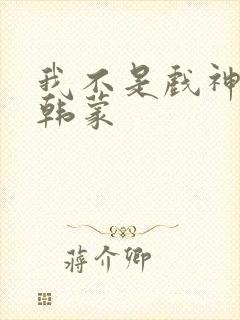 我不是戏神
韩蒙
蒋介卿